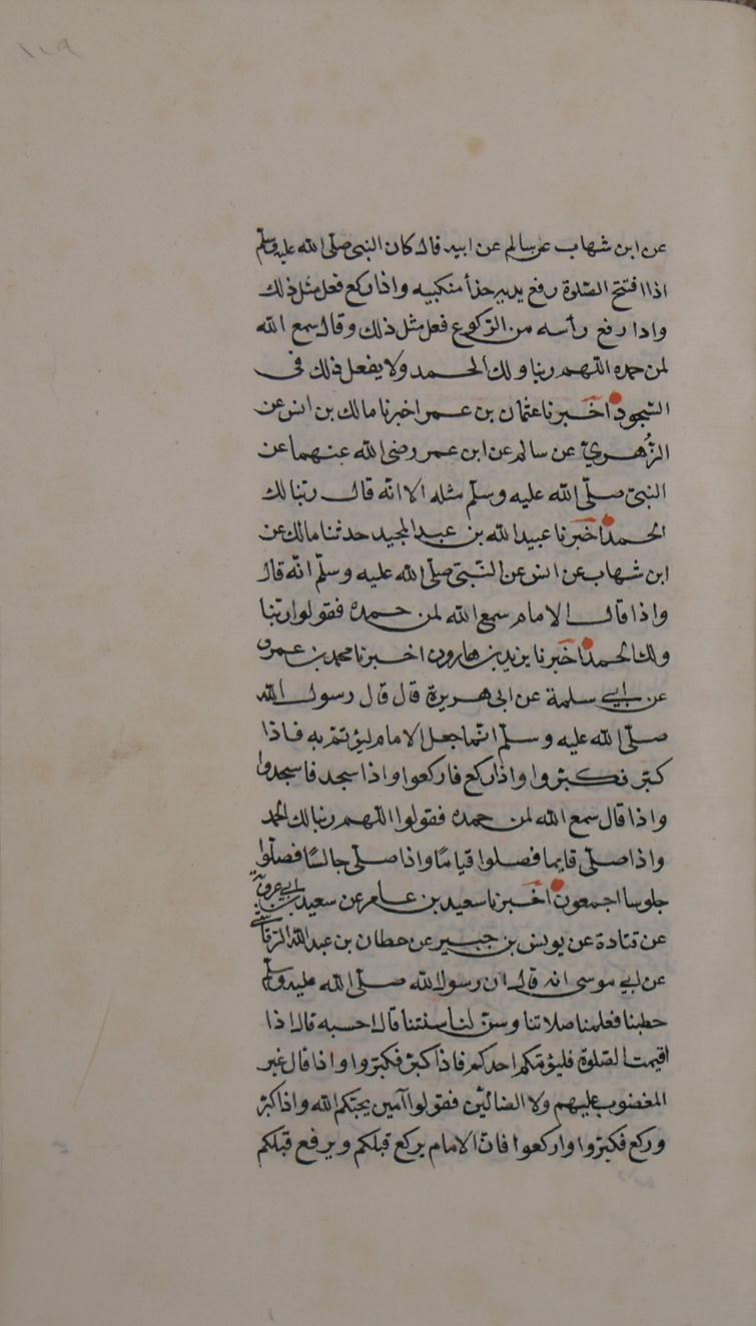 عن ابن شهاب عن سالم عن ابيه قال كان النبى صلّى الله عليه وسلّم
اذا افتتح الصّلوة رفع يديه حذأ منكبيه واذا ركع فعل مثل ذلك
واذا رفع رأسه من الرّكوع فعل مثل ذلك وقال سمع الله
لمن حمده اللّهم ربنا ولك الحمد ولا يفعل ذلك فى
السّجود اخبرنا عثمان بن عمر اخبرنا مالك بن انس عن
الزُّهرىّ عن سالم عن ابن عمر رضى الله عنهما عن
النبىّ صلّى الله عليه وسلّم مثله الا انّه قال ربّنا لك
الحمد اخبرنا عبيد الله بن عبد المجيد حدثنا مالك عن
ابن شهاب عن انس عن النّبىّ صلّى الله عليه وسلّم انّه قال
واذا قال الامام سمع الله لمن حمده فقولوا ربّنا
ولك الحمد اخبرنا يزيد بن هارون اخبرنا محمد بن عمرو
عن ابى سلمة عن ابى هريرة قال قال رسول الله
صلّى الله عليه وسلّم انّما جعل الامام ليؤتمّ به فاذا
كبّر فكبّروا واذا ركع فاركعوا واذا سجد فاسجدوا
واذا قال سمع الله لمن حمده فقولوا اللّهم ربّنا لك الحمد
واذا صلّى قايما فصلوا قيامًا واذا صلّى جالسًا فصلّوا
جلوسا اجمعون اخبرنا سعيد بن عامر عن سعيد بن ابى عروبة
عن قتادة عن يونس بن جبير عن حطان بن عبد الله الرقاشى
عن ابى موسى انه قال ان رسول الله صلّى الله عليه وسلّم
خطبنا فعلمنا صلاتنا وسنّ لنا سنتنا قال احسبه قال اذا
اقيمت الصّلوة فليؤمّكم احدكم فاذا كبّر فكبّروا واذا قال غير
المغضوب عليهم ولا الضالّين فقولوا آمين يجبكم الله واذا كبّر
وركع فكبّروا واركعوا فانّ الامام يركع قبلكم ويرفع قبلكم